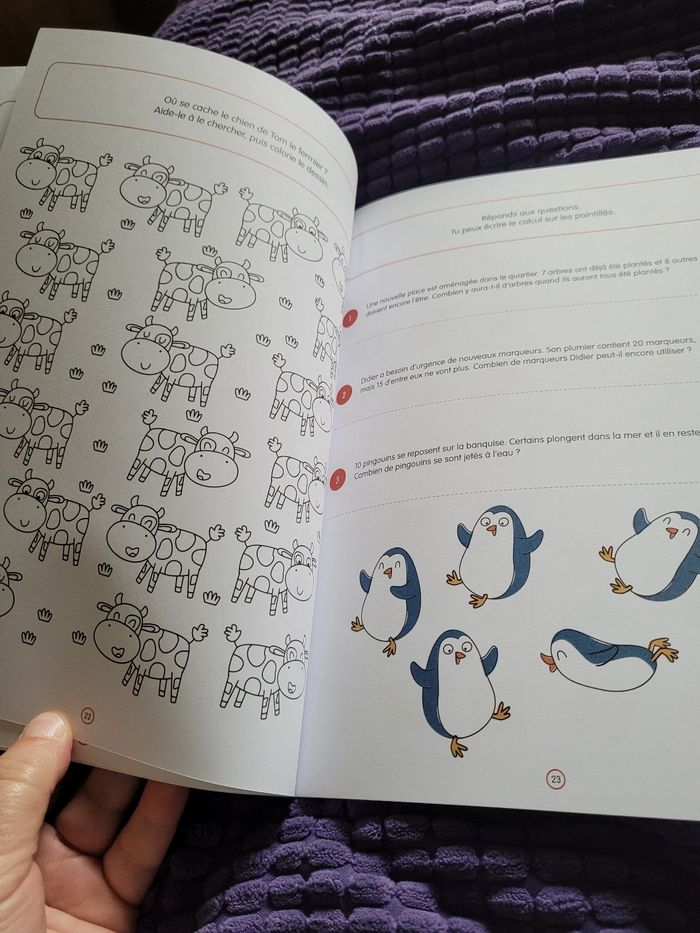 Où se cache le chien de Tom le fermier ?
Aide-le à le chercher, puis colorie le dessin.
22
Réponds aux questions.
Tu peux écrire le calcul sur les pointillés.
1
Une nouvelle place est aménagée dans le quartier. 7 arbres ont déjà été plantés et 8 autres
doivent encore l'être. Combien y aura-t-il d'arbres quand ils auront tous été plantés ?
2
Didier a besoin d'urgence de nouveaux marqueurs. Son plumier contient 20 marqueurs,
mais 15 d'entre eux ne vont plus. Combien de marqueurs Didier peut-il encore utiliser ?
3
10 pingouins se reposent sur la banquise. Certains plongent dans la mer et il en reste
Combien de pingouins se sont jetés à l'eau ?
23